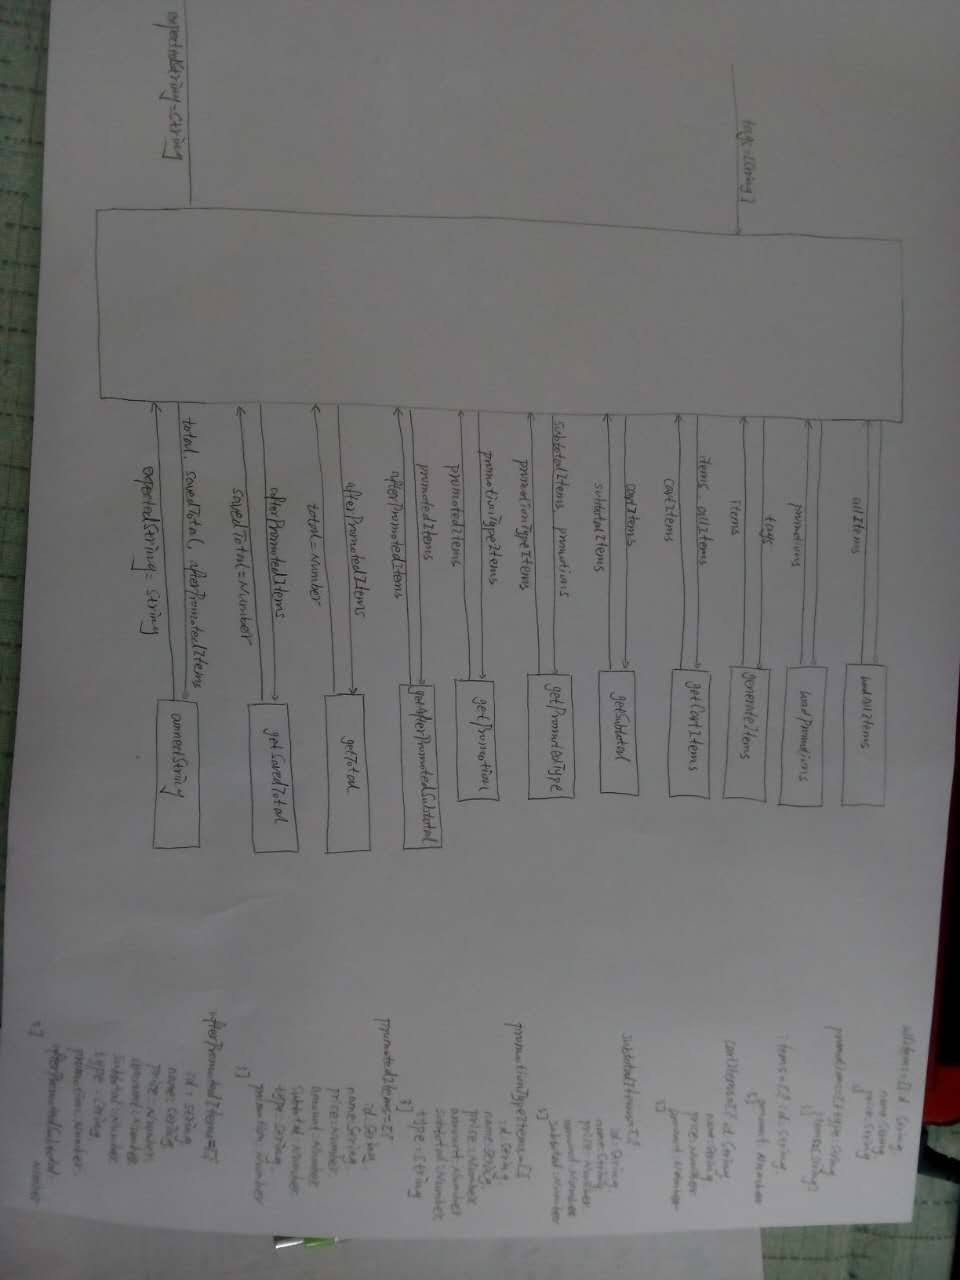 tags=[String]
expectedString=String
allItems
loadAllItems
promotions
loadPromotions
tags
items
generateItems
items allItems
cartItems
getCartItems
cartItems
subtotalItems
getSubtotal
subtotalItems promotions
promotionTypeItems
getPromotedType
promotionTypeItems
promotedItems
getPromotion
promotedItems
afterPromotedItems
getAfterPromotedSubtotal
afterPromotedItems
total=Number
getTotal
afterPromotedItems
savedTotal=Number
getSavedTotal
total, savedTotal, afterPromotedItems
expectedString=String
connectString
allItems=[{ id:String
name:String
price:String
promotions=[{type:String
items=[{ id:String
amount:Number
cartItems=[{ id:String
name:String
price:Number
amount:Number
}]
subtotalItems=[{
id:String
name:String
price:Number
amount:Number
subtotal:Number
}]
promotionTypeItems=[{
id:String
name:String
price:Number
amount:Number
subtotal:Number
type:String
}]
promotedItems=[{
id:String
name:String
price:Number
amount:Number
subtotal:Number
type:String
promotion:Number
}]
afterPromotedItems=[{
id:String
name:String
price:Number
amount:Number
subtotal:Number
type:String
promotion:Number
afterPromotedSubtotal:Number
}]